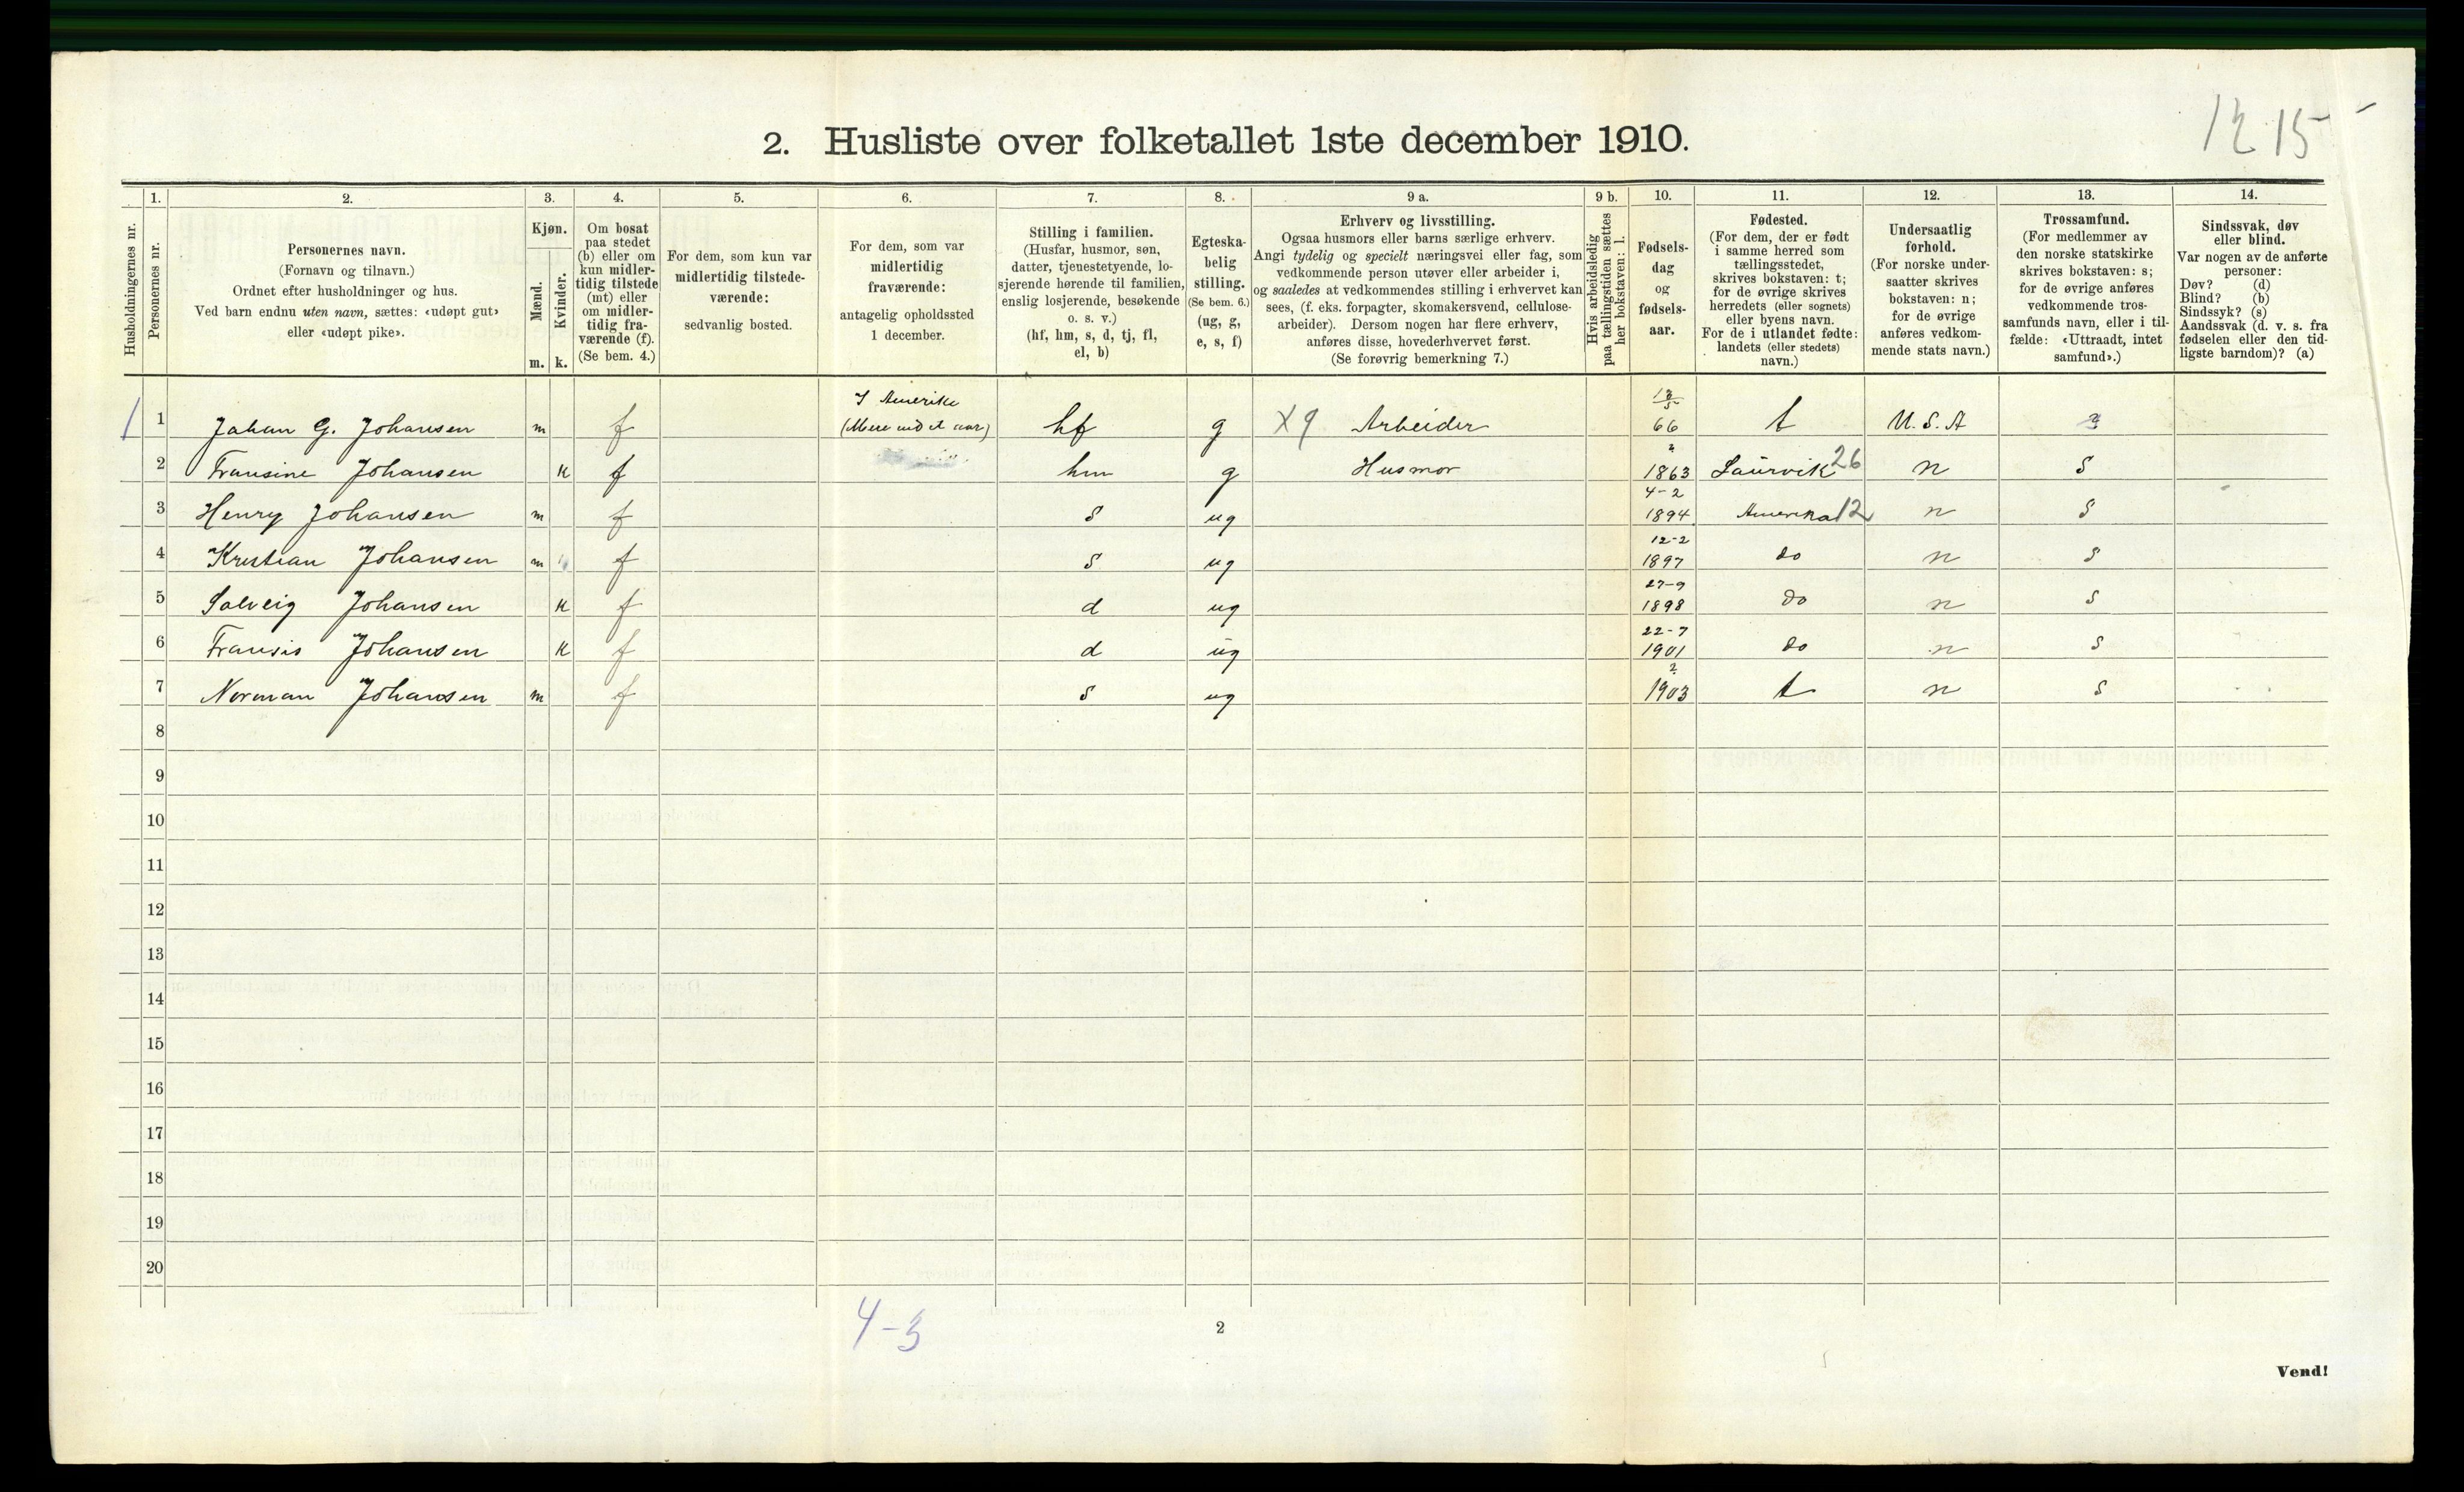 12 15
2. Husliste over folketallet 1ste december 1910.
1. 2. 3. 4. 5. 6. 7. 8. 9 a. 9 b. 10. 11. 12. 13. 14.
Husholdningernes nr.
Personernes nr.
Personernes navn.
(Fornavn og tilnavn.)
Ordnet efter husholdninger og hus.
Ved barn endnu uten navn, sættes: «udøpt gut»
eller «udøpt pike».
Kjøn.
Mænd.
Kvinder.
m. k.
Om bosat
paa stedet
(b) eller om
kun midler-
tidig tilstede
(mt) eller
om midler-
tidig fra-
værende (f).
(Se bem. 4.)
For dem, som kun var
midlertidig tilstede-
værende:
sedvanlig bosted.
For dem, som var
midlertidig
fraværende:
antagelig opholdssted
1 december.
Stilling i familien.
(Husfar, husmor, søn,
datter, tjenestetyende, lo-
sjerende hørende til familien,
enslig losjerende, besøkende
o. s. v.)
(hf, hm, s, d, tj, fl,
el, b)
Egteska-
belig
stilling.
(Se bem. 6.)
(ug, g,
e, s, f)
Erhverv og livsstilling.
Ogsaa husmors eller barns særlige erhverv.
Angi tydelig og specielt næringsvei eller fag, som
vedkommende person utøver eller arbeider i,
og saaledes at vedkommendes stilling i erhvervet kan
sees, (f. eks. forpagter, skomakersvend, cellulose-
arbeider). Dersom nogen har flere erhverv,
anføres disse, hovederhvervet først.
(Se forøvrig bemerkning 7.)
Hvis arbeidsledig
paa tællingstiden sættes
her bokstaven: l.
Fødsels-
dag
og
fødsels-
aar.
Fødested.
(For dem, der er født
i samme herred som
tællingsstedet,
skrives bokstaven: t;
for de øvrige skrives
herredets (eller sognets)
eller byens navn.
For de i utlandet fødte:
landets (eller stedets)
navn.)
Undersaatlig
forhold.
(For norske under-
saatter skrives
bokstaven: n;
for de øvrige
anføres vedkom-
mende stats navn.)
Trossamfund.
(For medlemmer av
den norske statskirke
skrives bokstaven: s;
for de øvrige anføres
vedkommende tros-
samfunds navn, eller i til-
fælde: «Uttraadt, intet
samfund».)
Sindssvak, døv
eller blind.
Var nogen av de anførte
personer:
Døv? (d)
Blind? (b)
Sindssyk? (s)
Aandssvak (d. v. s. fra
fødselen eller den tid-
ligste barndom)? (a)
I Amerike 13/5
1 1 Johan G. Johansen m f (Mere end et aar) hf g X9 Arbeider 66 t U. S. A
?
2 Fransine Johansen k f hm g Husmor 1863 Laurvik 26 n s
4-2
3 Henry Johansen m f s ug 1894 Amerika 12 n s
12-2
4 Kristian Johansen m f s ug 1897 do n s
27-9
5 Solveig Johansen k f d ug 1898 do n s
22-7
6 Fransis Johansen k f d ug 1901 do n s
?
7 Norman Johansen m f s ug 1903 t n s
8
9
10
11
12
13
14
15
16
17
18
19
20
4-3
2
Vend!